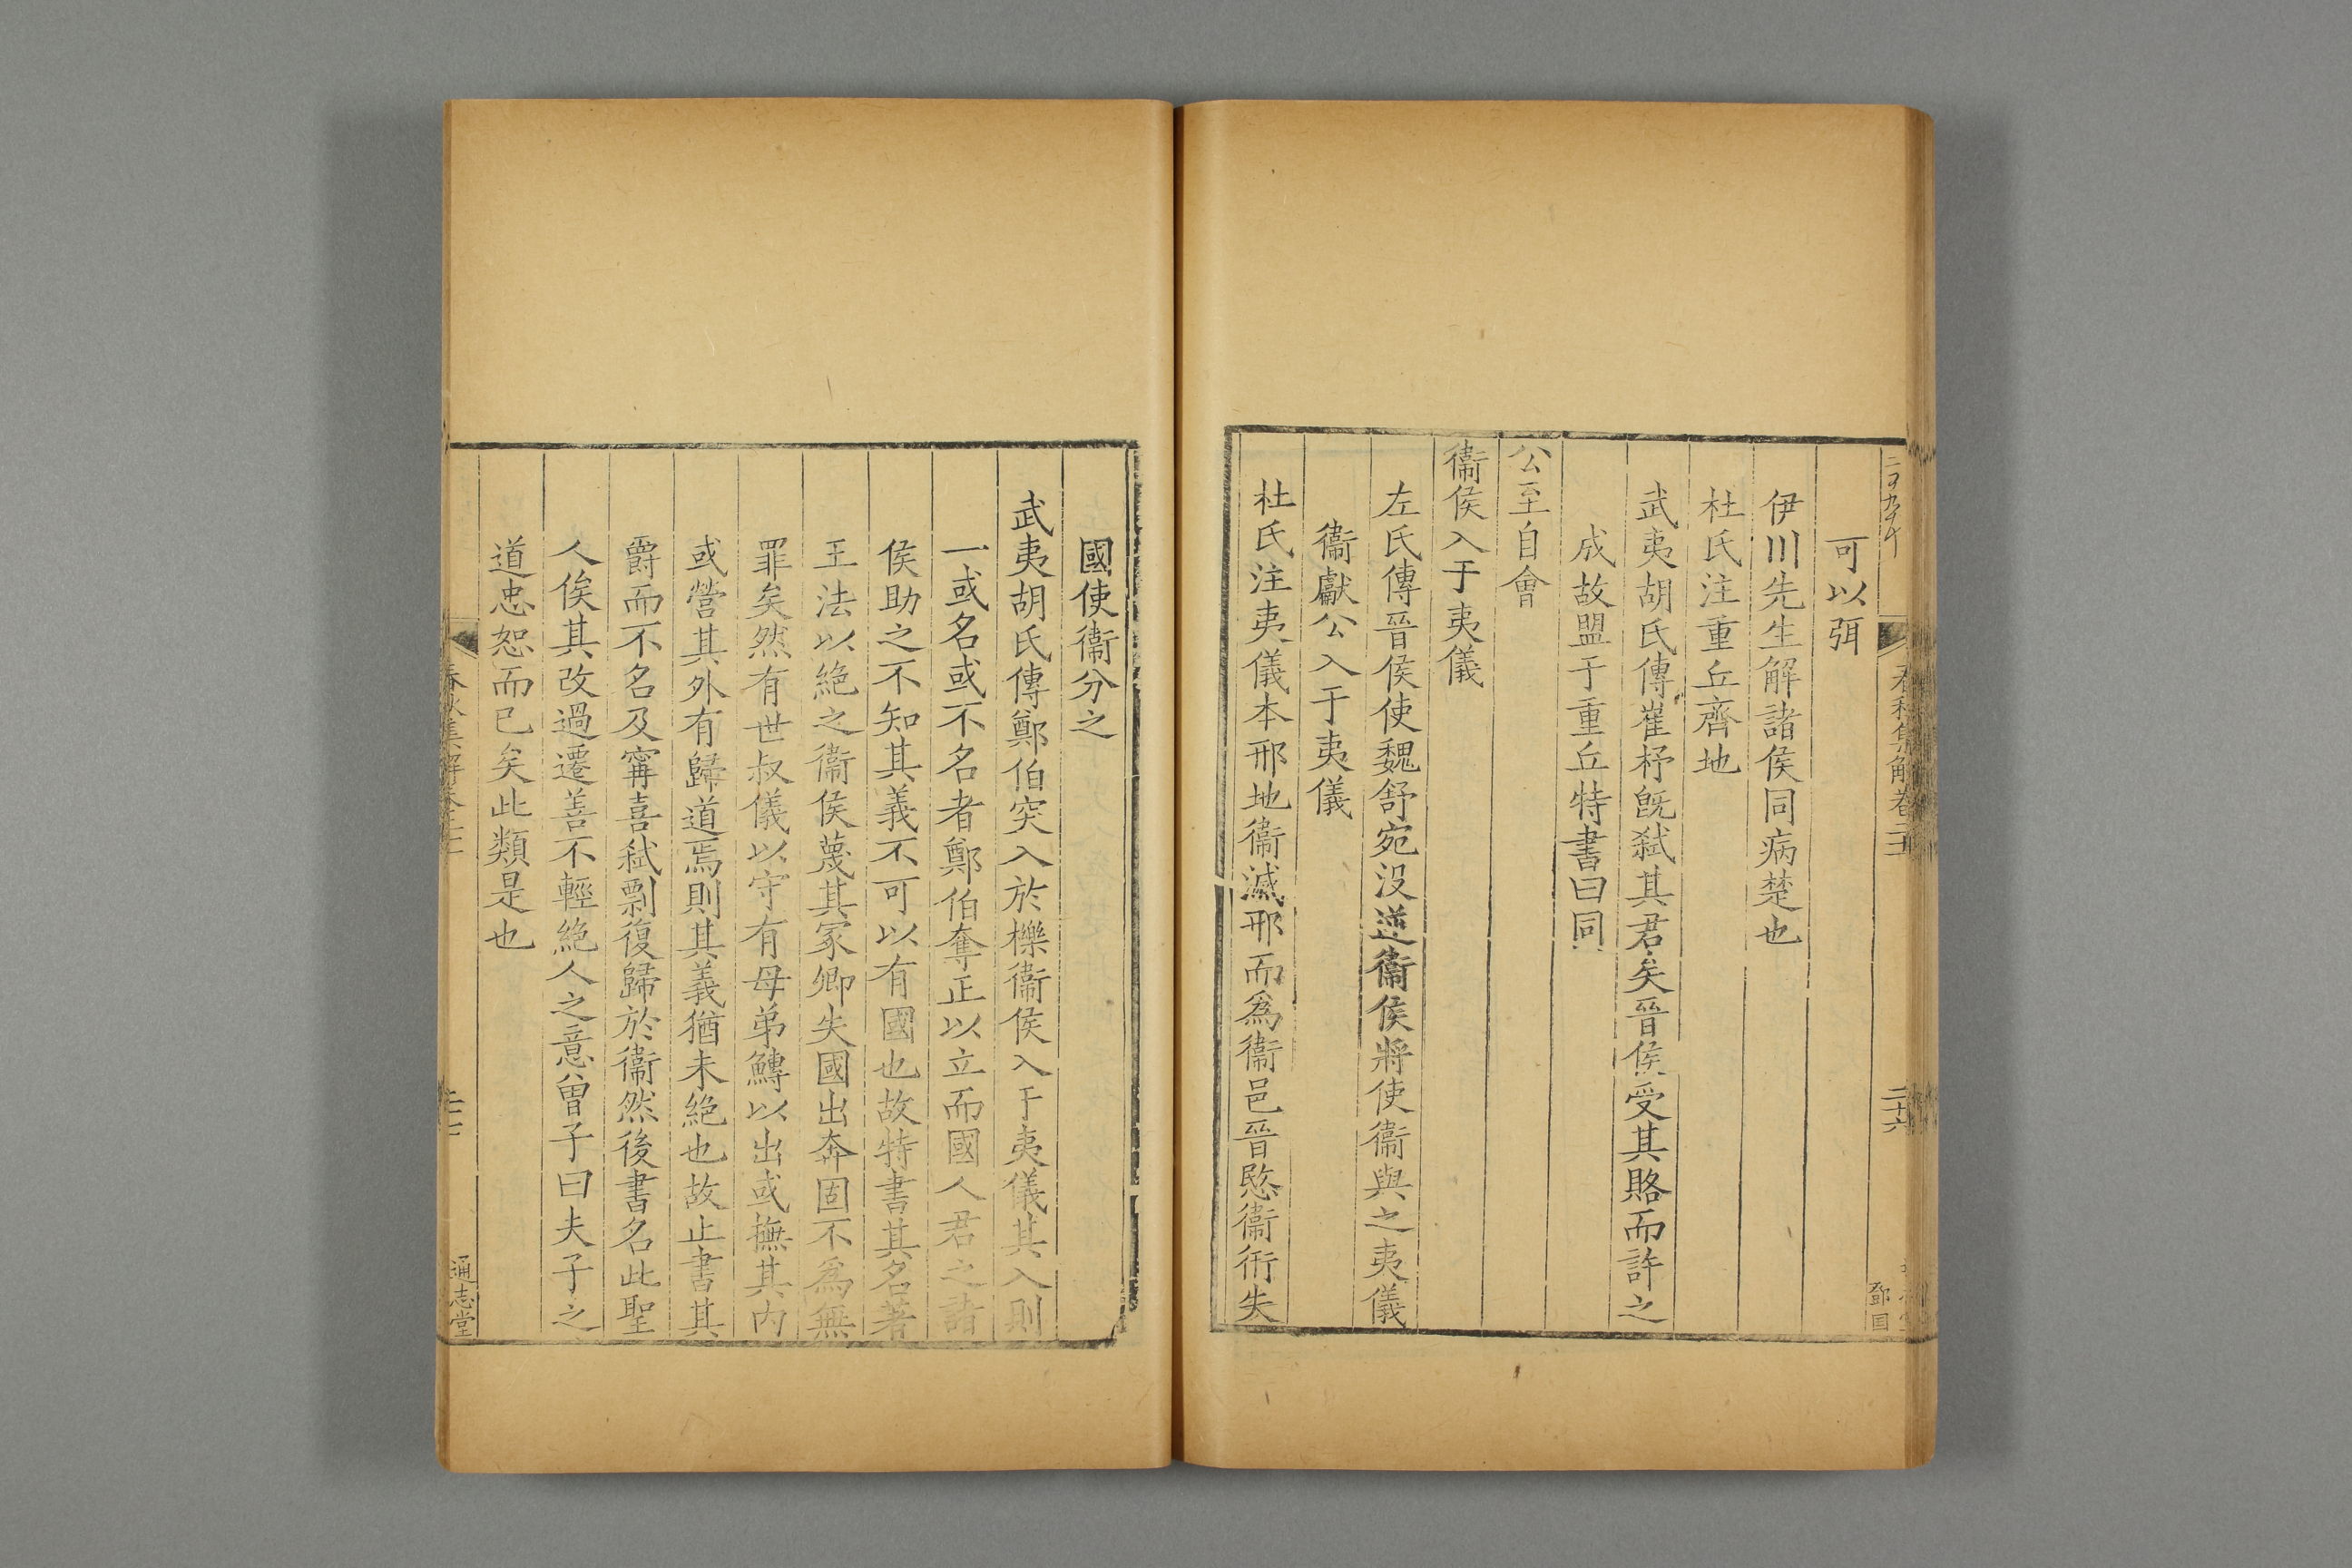 春秋集解卷二十二
二十六
可以弭
伊川先生解諸侯同病楚也
杜氏注重丘齊地
武夷胡氏傳崔杼旣弑其君矣晉侯受其賂而許之
成故盟于重丘特書曰同
公至自會
衞侯入于夷儀
左氏傳晉侯使魏舒宛没逆衞侯將使衞與之夷儀
衞獻公入于夷儀
杜氏注夷儀本邢地衞滅邢而爲衞邑晉愍衞衎失
國使衞分之
武夷胡氏傳鄭伯突入於櫟衞侯入于夷儀其入則
一或名或不名者鄭伯奪正以立而國人君之諸
侯助之不知其義不可以有國也故特書其名著
王法以絶之衞侯蔑其冢卿失國出奔固不爲無
罪矣然有世叔儀以守有母弟鱄以出或撫其内
或營其外有歸道焉則其義猶未絶也故止書其
爵而不名及甯喜弑剽復歸於衞然後書名此聖
人俟其改過遷善不輕絶人之意曾子曰夫子之
道忠恕而已矣此類是也
通志堂